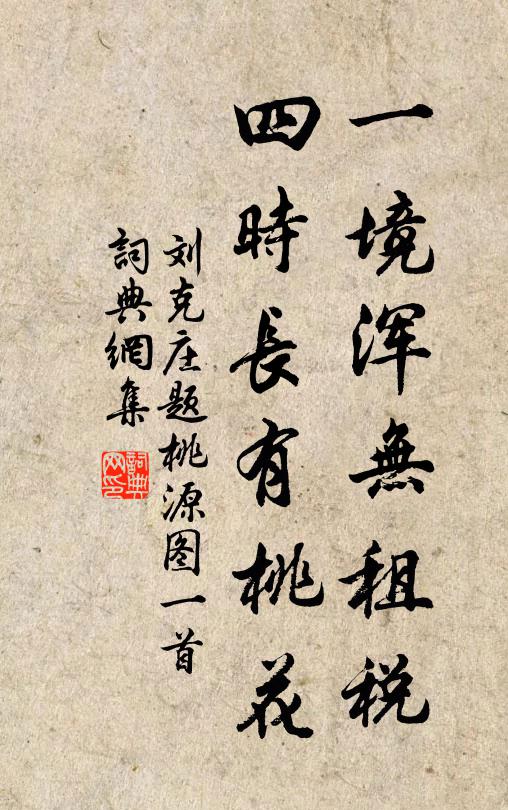 一境浑無租税
四時長有桃花
刘克庄题桃源图一首
詞典網集
詞典
网印